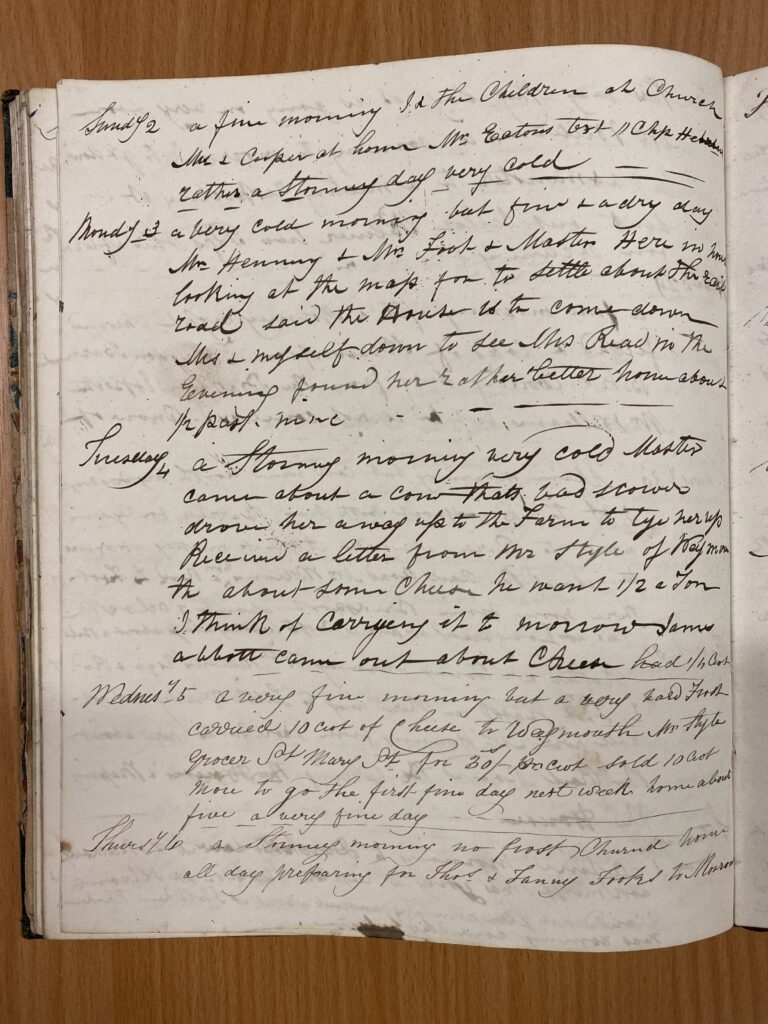 Sundy 2 a fine morning I & the Children at Church
Mrs & Casper at home Mr Eatons text 11 Chp Hebrews
rather a Stormey day very cold
Mondy 3 a very cold morning but fine & a dry day
Mr Henning & Mr Foot & Master Here in house
looking at the map for to settle about the rail
road said the House is to come down
Mrs & myself down to see Mrs Read in the
Evening found her rather better home about
1/2 past nine
Tuesday 4 a Stormey morning very cold Master
came about a cow thats bad scower
drove her away up to the Farm to tye her up
Received a letter from Mr Style of Waymou
th about some Cheese he want 1/2 a Ton
I think of Carrying it to morrow James
abbott came out about Cheese had 1/4 Cwt
Wednesy 5 a very fine morning but a very hard Frost
carried 10 Cwt of Cheese to Waymouth Mr Style
Grocer St Mary St for 30s/ per Cwt sold 10 Cwt
more to go the first fine day next week home about
five a very fine day
Thursy 6 a Stormey morning no frost Churnd home
all day preparing for Thos & Fanny Fooks to Morrow